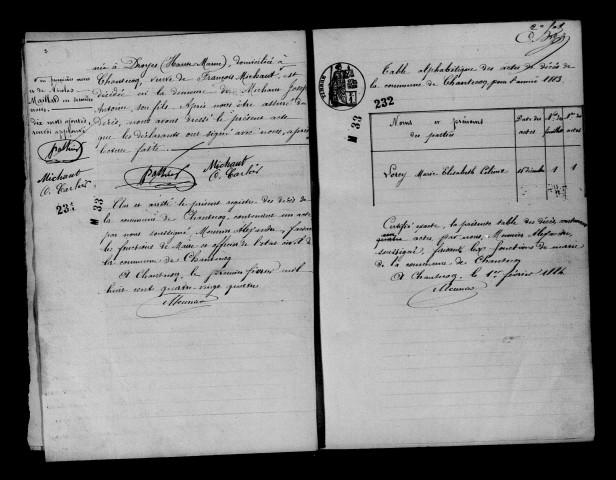 née à Droyes (Haute Marne), domiciliée à
Chantecoq, veuve de François Michaut, est
décédée en la demeure de Michaut Joseph
Antoine, son fils. Après nous être assuré du
Décès, nous avons dressé le présent acte
que les déclarants ont signé avec nous, après
lecture faite.
Michaut
Michaut
C. Carlier
C. Carlier
231
M 33
Clos et arrêté le présent registre des décès de
la commune de Chantecoq, contenant un acte
par nous soussigné, Meunier Alexandre, faisant
les fonctions de Maire et officier de l'état civil de
la commune de Chantecoq
A Chantecoq, le premier février mil
huit cent quatre-vingt quatre
Meunier
Table alphabétique des actes de décès de
la commune de Chantecoq, pour l'année 1883.
232
M 33
Noms et prénoms
des parties
Date des
actes
Nos des
feuillets
Nos des
actes
Marie Elisabeth
1
1
Certifié exacte, la présente table des décès, contenant
actes, par nous, Meunier Alexandre,
soussigné, faisant les fonctions de maire
de la commune de Chantecoq
A Chantecoq, le 1er février 1884
Meunier